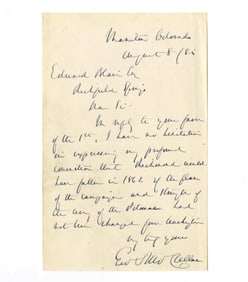 Manitou Colorado
August 8 / 82
Edward
Richfield Springs
Dear Sir:
In reply to your favor
of the 1st, I have no hesitation
in expressing my profound
conviction that Richmond would
have fallen in 1862 if the plan
of the campaign and strength of
the army of the Potomac had
not been changed from Washington
very truly yours
Geo B McClellan